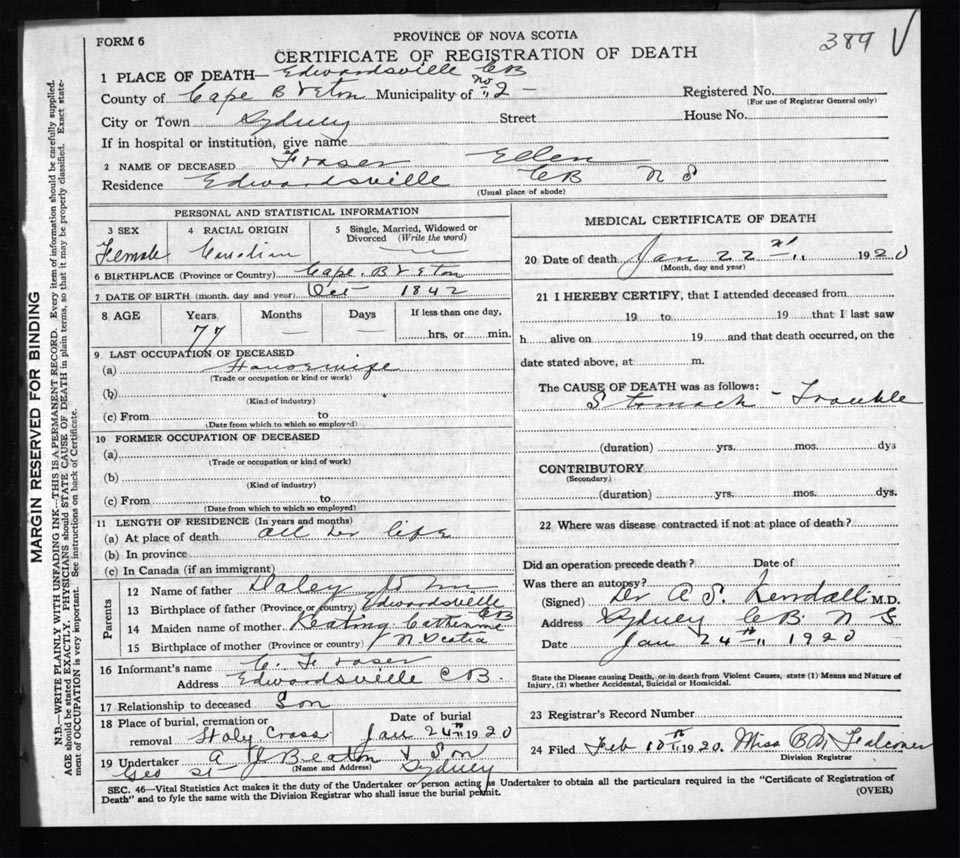 FORM 6
PROVINCE OF NOVA SCOTIA
389 V
CERTIFICATE OF REGISTRATION OF DEATH
1 PLACE OF DEATH— Edwardsville CB
County of Cape Breton Municipality of No 2 –
Registered No.
(For use of Registrar General only)
City or Town Sydney Street House No.
If in hospital or institution, give name
2 NAME OF DECEASED Fraser Ellen
Residence Edwardsville CB N S
(Usual place of abode)
PERSONAL AND STATISTICAL INFORMATION
3 SEX Female
4 RACIAL ORIGIN
5 Single, Married, Widowed or Divorced (Write the word)
6 BIRTHPLACE (Province or Country) Cape Breton
7 DATE OF BIRTH (month, day and year) Oct 1842
8 AGE Years Months Days If less than one day,
77 — — hrs. or min.
9 LAST OCCUPATION OF DECEASED
(a) Housewife
(Trade or occupation or kind or work)
(b)
(Kind of industry)
(c) From to
(Date from which to which so employed)
10 FORMER OCCUPATION OF DECEASED
(a)
(Trade or occupation or kind of work)
(b)
(Kind of industry)
(c) From to
(Date from which to which so employed)
11 LENGTH OF RESIDENCE (In years and months)
(a) At place of death all her life
(b) In province
(c) In Canada (if an immigrant)
Parents
12 Name of father Daley John
13 Birthplace of father (Province or country) Edwardsville CB
14 Maiden name of mother Keating Catherine
15 Birthplace of mother (Province or country) N Scotia
16 Informant's name C. Fraser
Address Edwardsville CB.
17 Relationship to deceased Son
18 Place of burial, cremation or removal Holy Cross
Date of burial Jan 24th 1920
19 Undertaker A J Beaton & Son
(Name and Address)
Geo St Sydney
MEDICAL CERTIFICATE OF DEATH
20 Date of death Jan 22 1920
(Month, day and year)
21 I HEREBY CERTIFY, that I attended deceased from
19 to 19 that I last saw
h alive on 19 and that death occurred, on the
date stated above, at m.
The CAUSE OF DEATH was as follows:
Stomach - Trouble
(duration) yrs. mos. dys
CONTRIBUTORY
(Secondary)
(duration) yrs. mos. dys.
22 Where was disease contracted if not at place of death?
Did an operation precede death? Date of
Was there an autopsy?
(Signed) Dr A S. Kendall M.D.
Address Sydney C B. N S
Date Jan 24th 1920
State the Disease causing Death, or in death from Violent Causes, state (1) Means and Nature of
Injury, (2) whether Accidental, Suicidal or Homicidal.
23 Registrar's Record Number
24 Filed Feb 10th 1920. Miss B M
Division Registrar
SEC. 46—Vital Statistics Act makes it the duty of the Undertaker or person acting as Undertaker to obtain all the particulars required in the "Certificate of Registration of
Death" and to fyle the same with the Division Registrar who shall issue the burial permit.
(OVER)
MARGIN RESERVED FOR BINDING
N.B.—WRITE PLAINLY WITH UNFADING INK—THIS IS A PERMANENT RECORD. Every item of information should be carefully supplied.
AGE should be stated EXACTLY. PHYSICIANS should STATE CAUSE OF DEATH in plain terms, so that it may be properly classified. Exact state-
ment of OCCUPATION is very important. See instructions on back of Certificate.